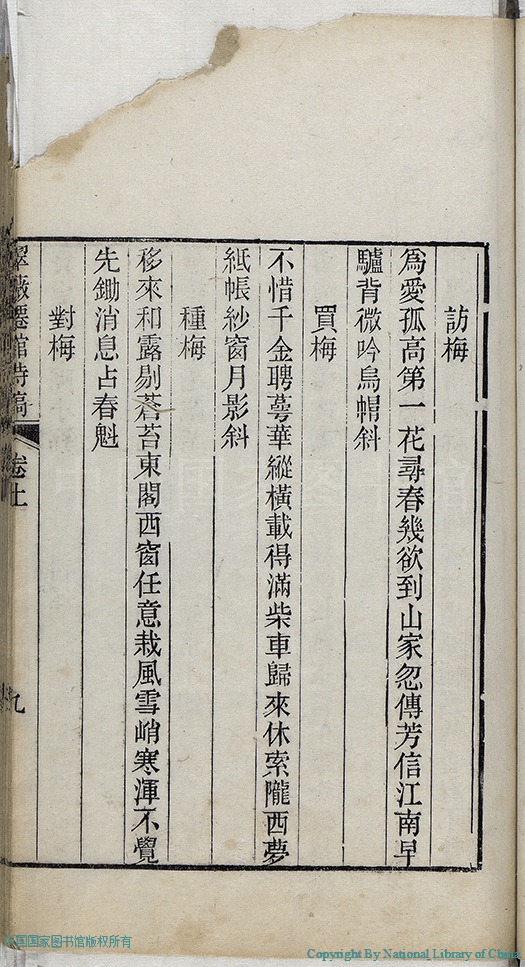 訪梅
爲愛孤高第一花尋春幾欲到山家忽傳芳信江南早
驢背微吟烏帽斜
買梅
不惜千金聘萼華縱橫載得滿柴車歸來休索隴西夢
紙帳紗窗月影斜
種梅
移來和露剔蒼苔東閣西窗任意栽風雪峭寒渾不覺
先鋤消息占春魁
對梅
館詩稿 卷上 九
中国国家图书馆版权所有
Copyright By National Library of China